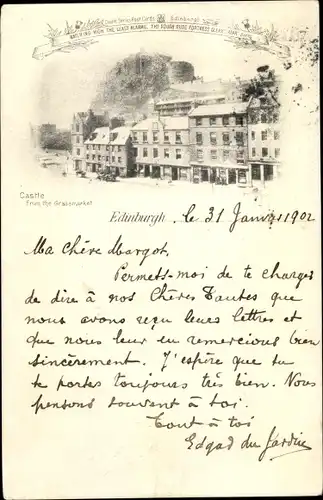 Series Post Cards Edinburgh
Castle
from the Grassmarket
Edinburgh, le 31 Janvier 1902
Ma Chère Margot,
Permets-moi de te charger
de dire à nos Chères Tantes que
nous avons reçu leurs lettres et
que nous leur en remercions bien
sincèrement. J'espère que tu
te portes toujours très bien. Nous
pensons souvent à toi.
Tout à toi
Edgad du Jardin